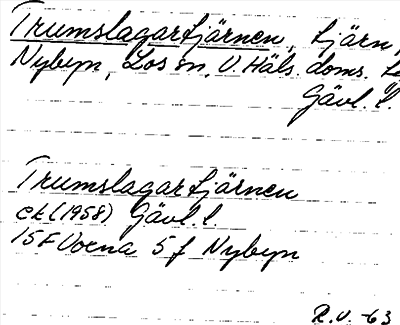 Trumslagartjärnen, tjärn,
Nybyn, Los sn, V Häls. doms.
Gävl. l.
Trumslagartjärnen
ek (1958) Gävl. l.
15F Voxna 5f Nybyn
R.V. -63